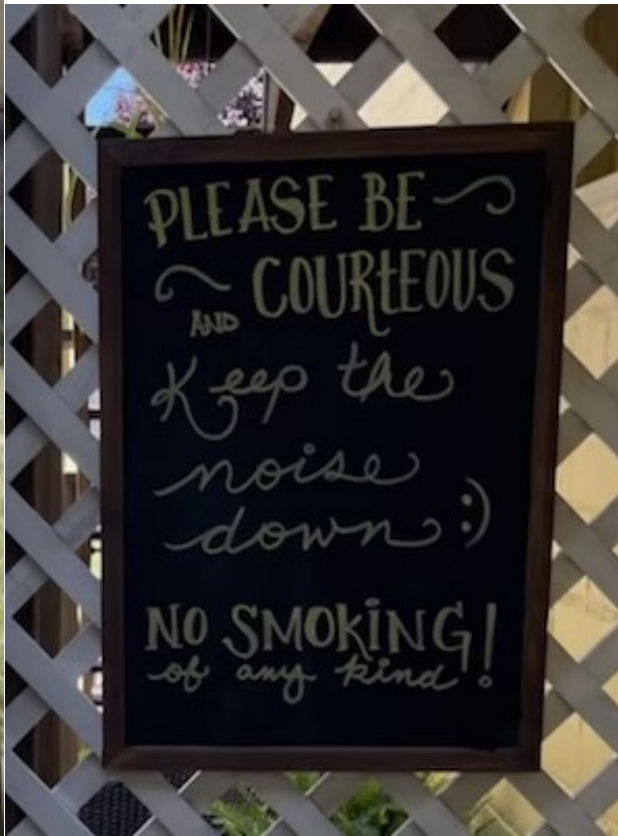 PLEASE BE
COURTEOUS
AND
Keep the
noise
down :)
NO SMOKING!
of any kind